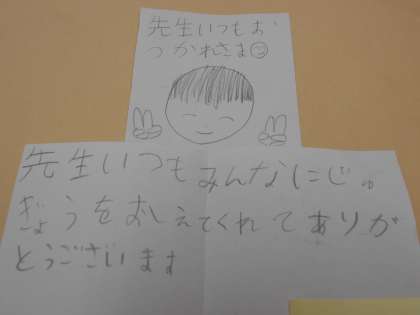 先生いつもお
つかれさま
先生いつもみんなにじゅ
ぎょうをおしえてくれてありが
とうございます